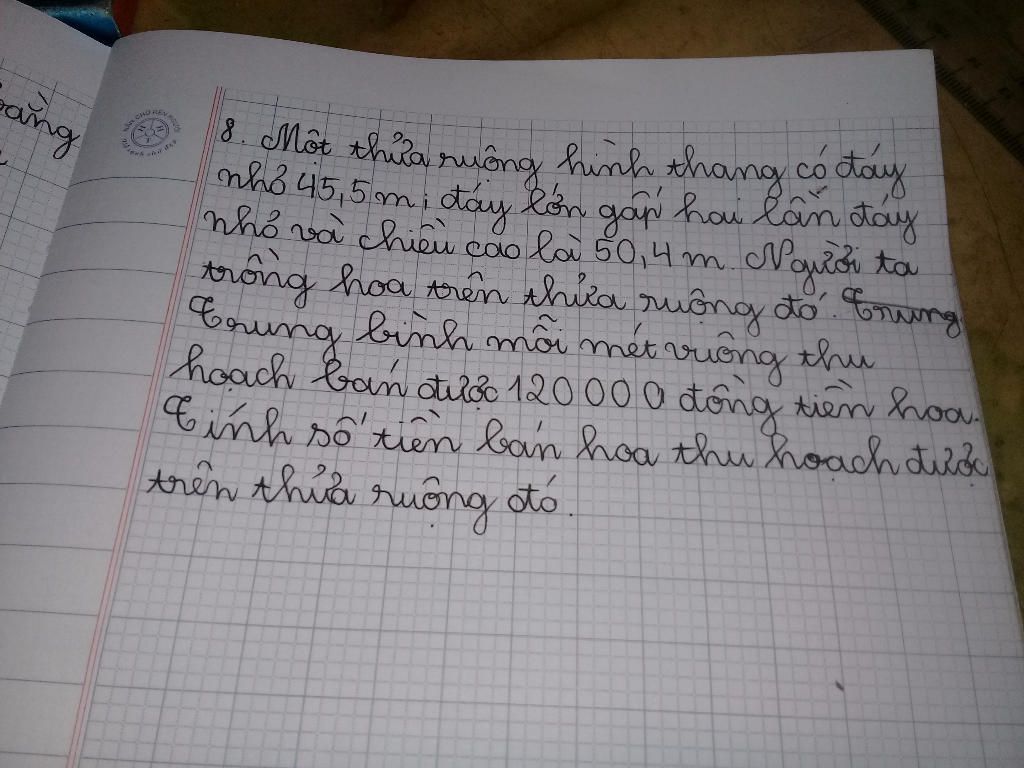 oằng
8. Một thửa ruộng hình thang có đáy
nhỏ 45,5m; đáy lớn gấp hai lần đáy
nhỏ và chiều cao là 50,4m. Người ta
trồng hoa trên thửa ruộng đó. Trung
Trung bình mỗi mét vuông thu
hoạch bán được 120000 đồng tiền hoa.
Tính số tiền bán hoa thu hoạch được
trên thửa ruộng đó.